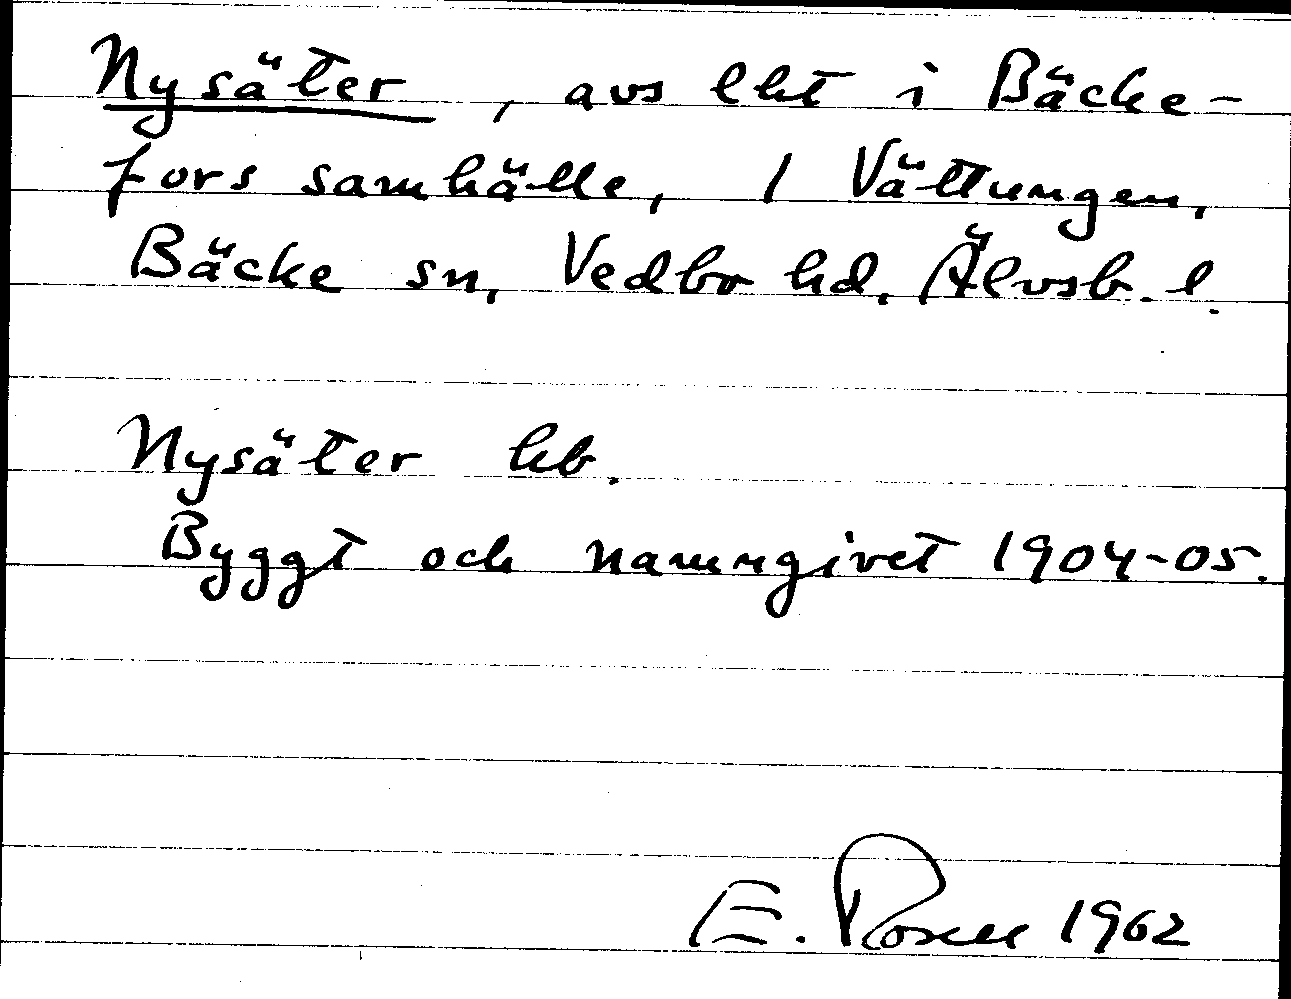 Nysäter, avs lht i Bäcke-
fors samhälle, 1 Vättungen,
Bäcke sn, Vedbo hd, Älvsb. l.
Nysäter hb.
Byggt och namngivet 1904-05.
E. 1962